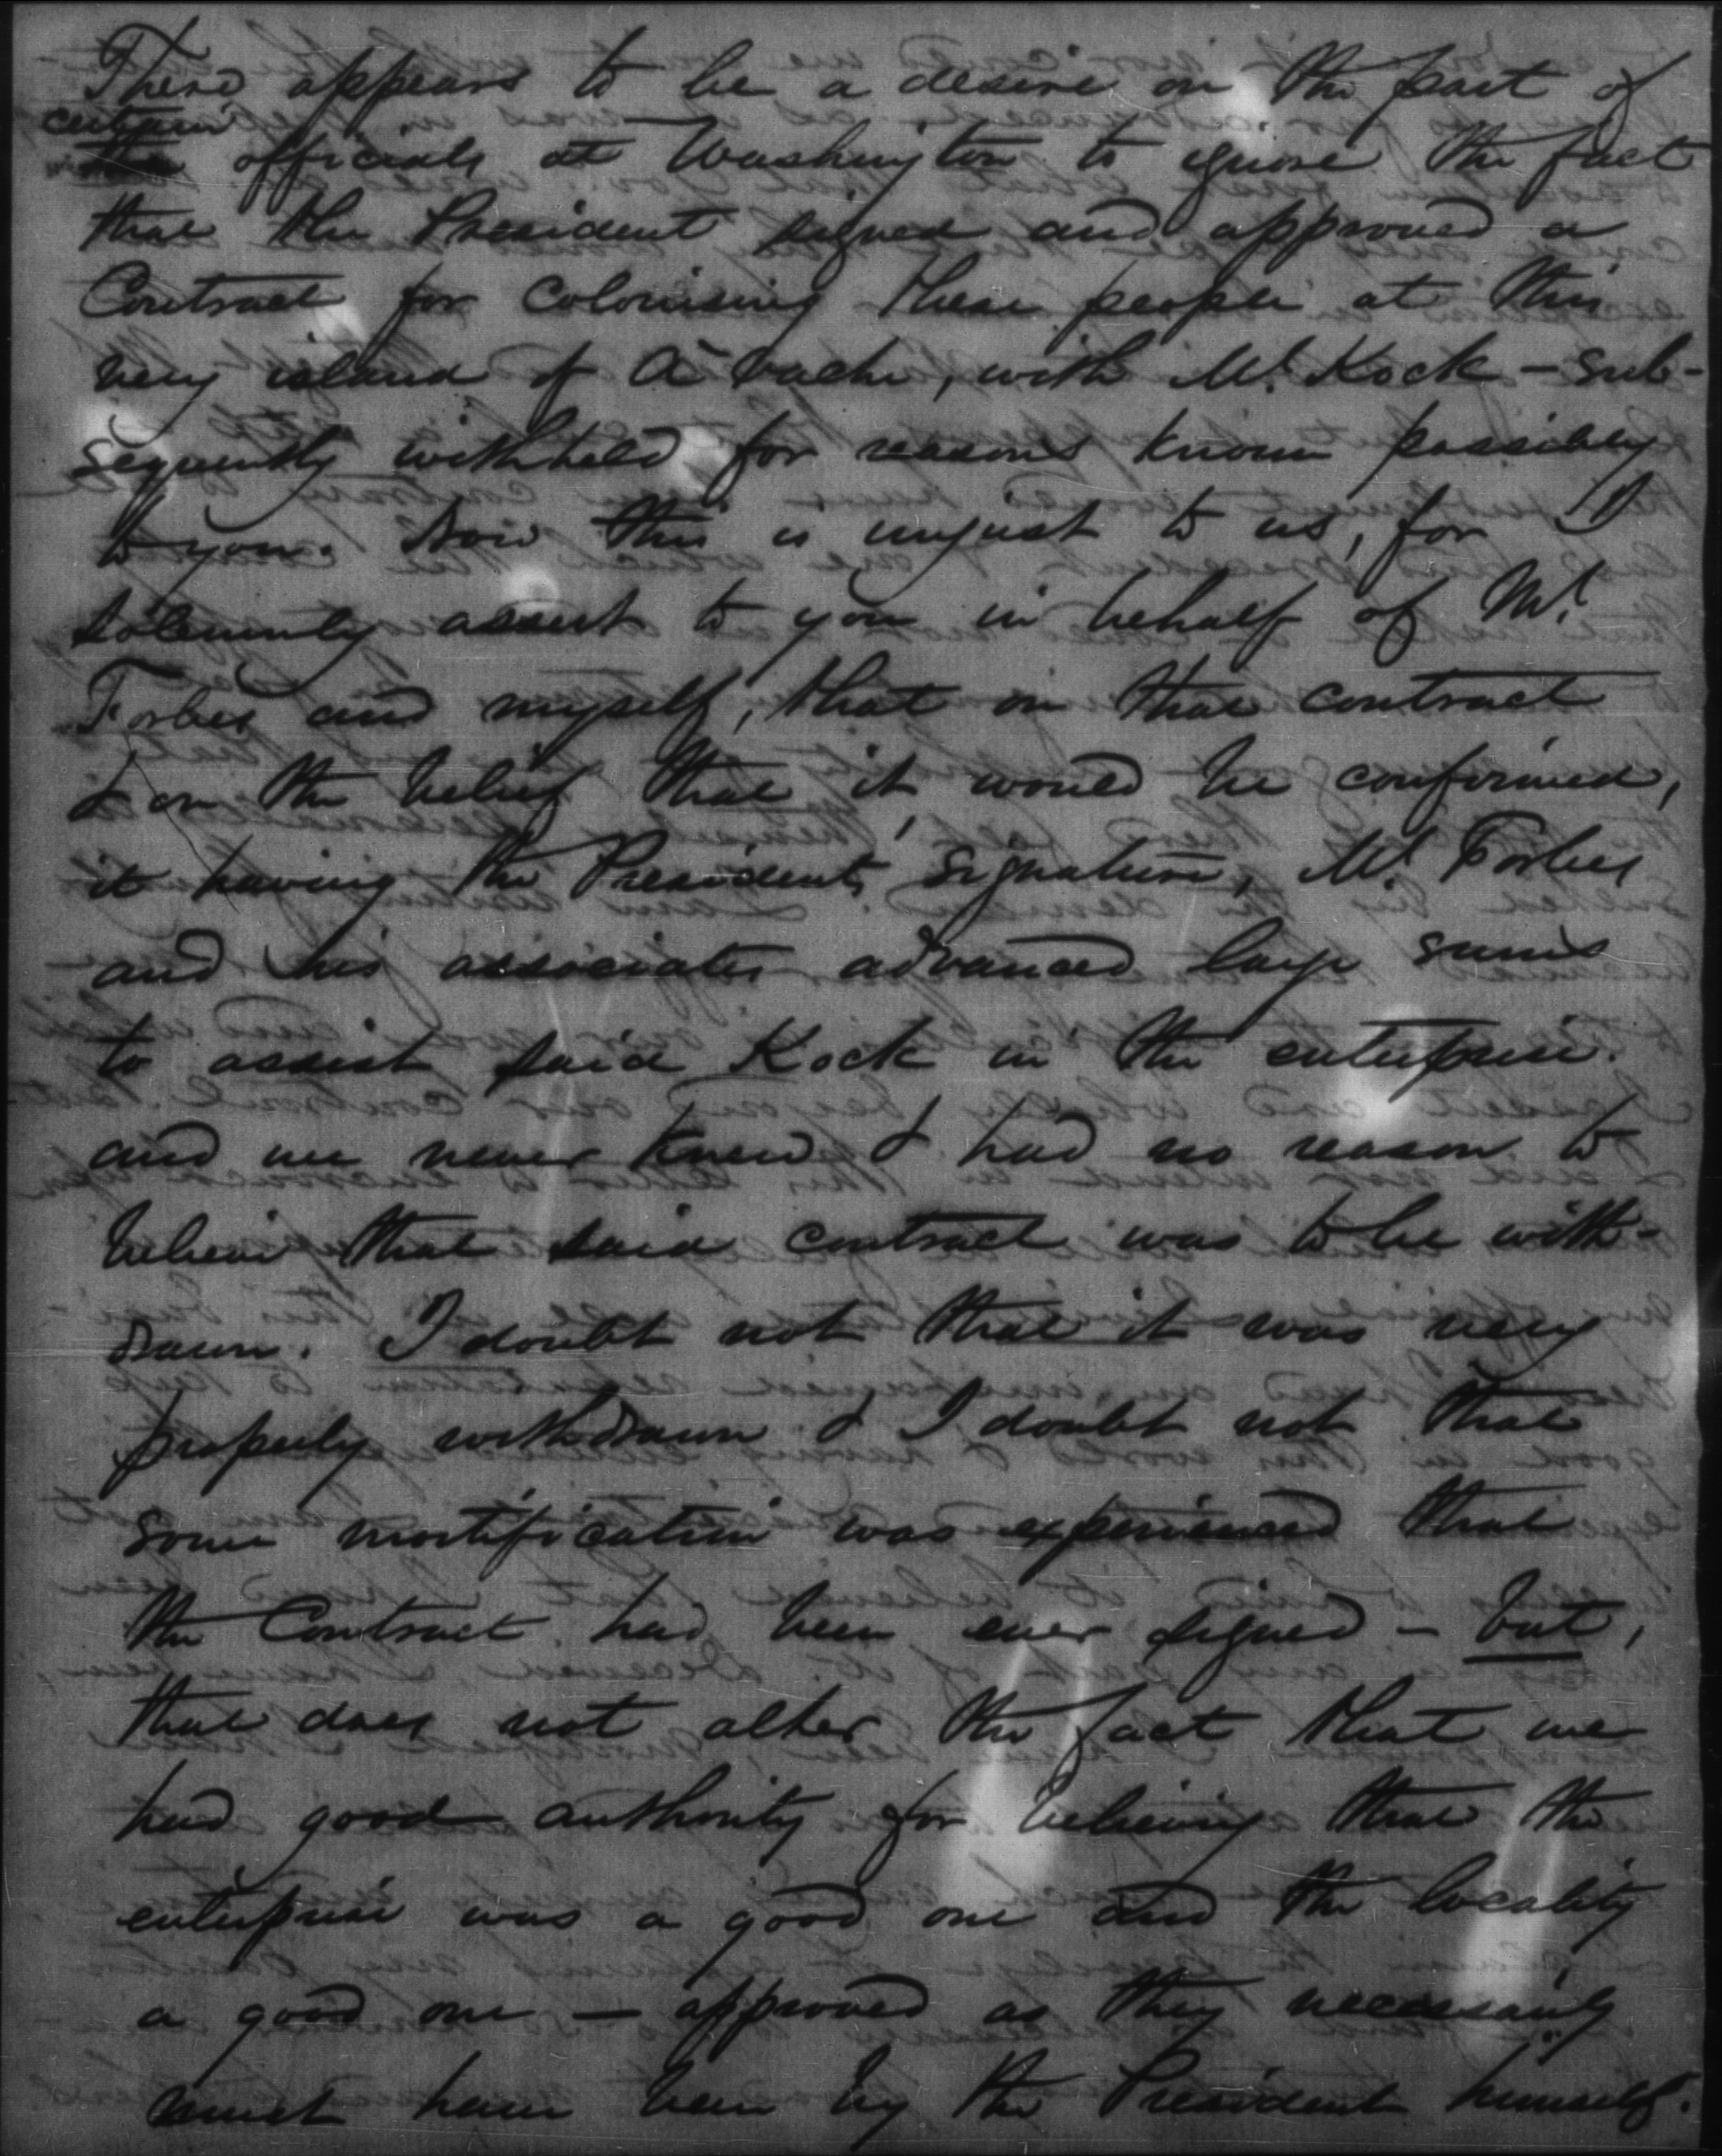 There appears to be a desire on the part of
certain
officials at Washington to ignore the fact
that the President signed and approved a
Contract for Colonising these people at this
very island of A'Vache, with Mr. Kock - sub-
sequently withheld for reasons known possibly
to you. Now this is unjust to us, for I
solemnly assert to you in behalf of Mr.
Forbes and myself, that on that contract
& on the belief that it would be confirmed,
it having the President's signature, Mr. Forbes
and his associates advanced large sums
to assist said Kock in the enterprise.
and we never knew & had no reason to
believe that said contract was to be with-
drawn. I doubt not that it was very
properly withdrawn & I doubt not that
some mortification was experienced that
the Contract had been ever signed - but,
that does not alter the fact that we
had good authority for believing that the
enterprise was a good one and the locality
a good one - approved as they necessarily
must have been by the President himself.